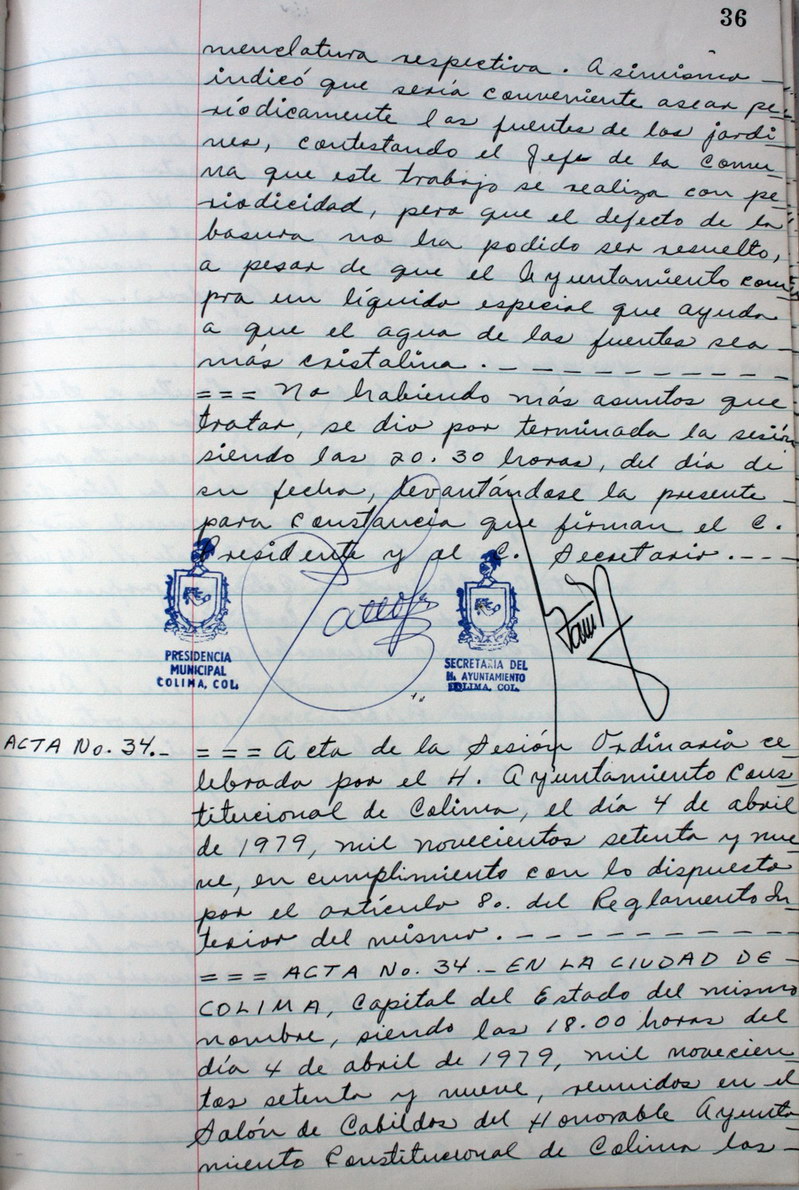 36
menclatura respectiva. Asimismo -
indicó que sería conveniente asear pe-
riódicamente las fuentes de los jardi-
nes, contestando el Jefe de la Comu-
na que este trabajo se realiza con pe-
riodicidad, pero que el defecto de la
basura no ha podido ser resuelto,
a pesar de que el Ayuntamiento com-
pra un líquido especial que ayuda
a que el agua de las fuentes sea -
más cristalina. - - - - - - - - - -
=== No habiendo más asuntos que
tratar, se dio por terminada la sesión
siendo las 20.30 horas, del día de
su fecha, levantándose la presente -
para constancia que firman el C.
Presidente y el C. Secretario. - - -
PRESIDENCIA
MUNICIPAL
COLIMA, COL.
SECRETARIA DEL
H. AYUNTAMIENTO
COLIMA, COL.
ACTA No. 34.-
=== Acta de la Sesión Ordinaria ce-
lebrada por el H. Ayuntamiento Cons-
titucional de Colima, el día 4 de abril
de 1979, mil novecientos setenta y nue-
ve, en cumplimiento con lo dispuesto
por el artículo 8o. del Reglamento In-
terior del mismo. - - - - - - - - - -
=== ACTA No. 34.- EN LA CIUDAD DE -
COLIMA, Capital del Estado del mismo
nombre, siendo las 18.00 horas del
día 4 de abril de 1979, mil novecien-
tos setenta y nueve, reunidos en el
Salón de Cabildos del Honorable Ayunta-
miento Constitucional de Colima los -